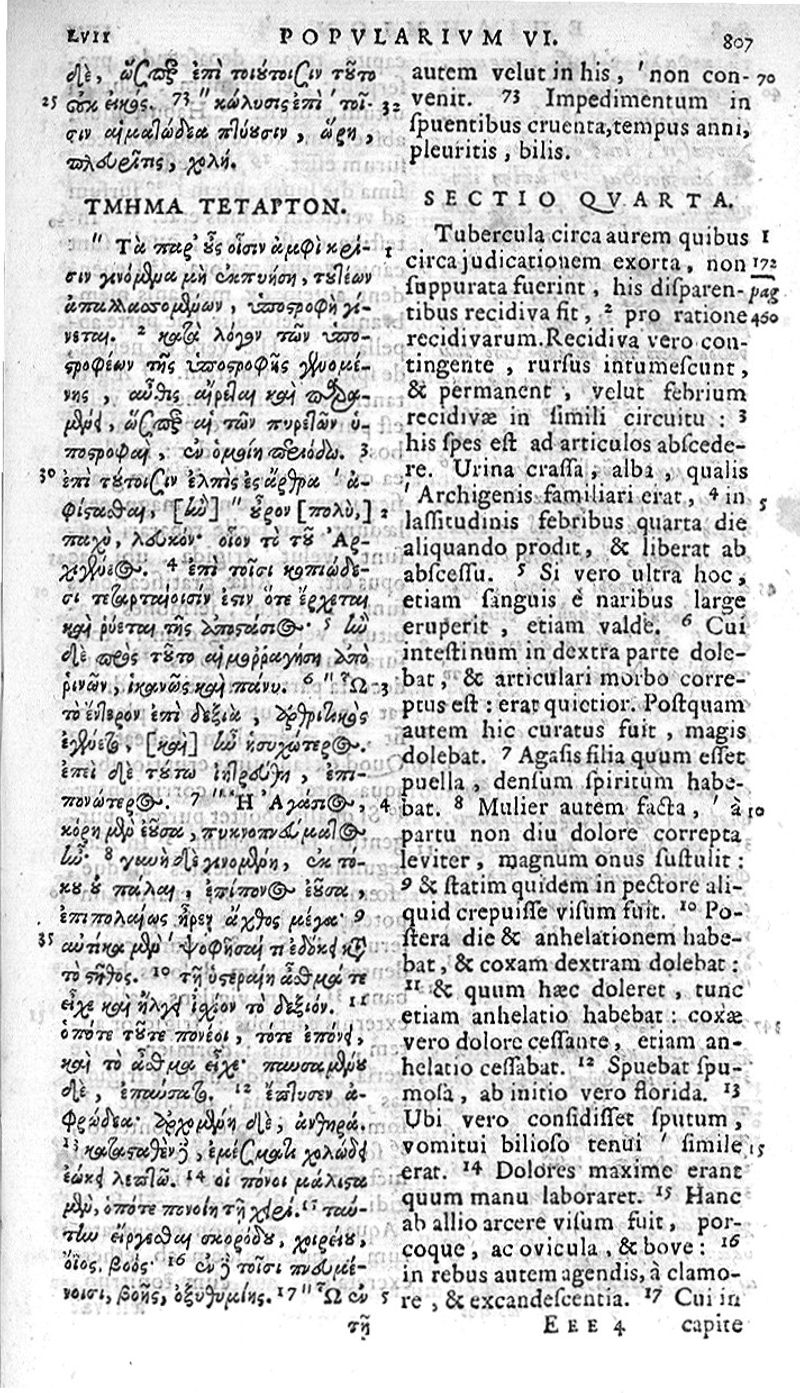 LVII POPVLARIVM VI. 807
δὲ, ὥσπερ ἐπὶ τουτέοισιν τοῦτο
25 οὐκ εἰκός. 73 " κώλυσις ἐπὶ ' τοῖ- 32
σιν αἱματώδεα πτύουσιν, ὥρη,
πλευρῖτις, χολή.
ΤΜΗΜΑ ΤΕΤΑΡΤΟΝ.
" Τὰ παρ' οὖς οἷσιν ἀμφὶ κρί- 1
σιν γινόμενα μὴ ἐκπυήσῃ, τουτέων
ἀπαλλασσομένων, ὑποστροφὴ γί-
νεται. 2 κατὰ λόγον τῶν ὑπο-
στροφέων τῆς ὑποστροφῆς γενομέ-
νης, αὖθις αἴρεται καὶ παραμέ-
μένει, ὥσπερ αἱ τῶν πυρετῶν ὑ-
ποστροφαὶ, ἐν ὁμοίῃ περιόδῳ. 3
30 ἐπὶ τούτοισιν ἐλπὶς ἐς ἄρθρα ' ἀ-
φίστασθαι, [ἢν] " οὖρον [πολὺ,] 2
παχὺ, λευκόν· οἷον τὸ τοῦ Ἀρ-
χιγένεος. 4 ἐπὶ τοῖσι κοπιώδε-
σι τεταρταίοισίν ἐστιν ὅτε ἔρχεται
καὶ ῥύεται τῆς ἀποστάσιος· 5 ἢν
δὲ πρὸς τοῦτο αἱμορραγήσῃ ἀπὸ
ῥινῶν, ἱκανῶς καὶ πάνυ. 6 " Ὧ 3
τὸ ἔντερον ἐπὶ δεξιὰ, ἀρθριτικὸς
ἐγένετο, [καὶ] ἦν ἡσυχώτερος.
ἐπεὶ δὲ τούτω ἰητρεύθη, ἐπι-
πονώτερος. 7 " Ἡ Ἀγάσιος, 4
κόρη μὲν ἐοῦσα, πυκνοπνεύματος
ἦν· 8 γυνὴ δὲ γενομένη, ἐκ τό-
κου οὐ πάλαι, ἐπίπονος ἐοῦσα,
ἐπιπολαίως ἦρεν ἄχθος μέγα· 9
35 αὐτίκα μὲν ' ψοφῆσαί τι ἐδόκει κατὰ
τὸ στῆθος. 10 τῇ ὑστεραίῃ ἆσθμά τε
εἶχε καὶ ἤλγει ἰσχίον τὸ δεξιόν. 11
ὁπότε τοῦτο πονέοι, τότε ἐπόνει,
καὶ τὸ ἆσθμα εἶχε· παυσαμένου
δὲ, ἐπαύσατο. 12 ἔπτυσεν ἀ-
φρώδεα· ἀρχομένη δὲ, ἀνθηρά.
13 καταστάθεν δὲ, ἐμέσματι χολώδει
ἐῴκει λεπτῷ. 14 οἱ πόνοι μάλιστα
μὲν, ὁπότε πονοίη τῇ χειρί. 15 ταύ-
την εἴργεσθαι σκορόδου, χοιρείου,
ὄϊος, βοός· 16 ἐν δὲ τοῖσι ποιευμέ-
νοισι, βοῆς, ὀξυθυμίης. 17 " Ὧ ἐν 5
τῇ
autem velut in his, ' non con- 70
venit. 73 Impedimentum in
spuentibus cruenta, tempus anni,
pleuritis, bilis.
SECTIO QVARTA.
Tubercula circa aurem quibus 1
circa judicationem exorta, non 172
suppurata fuerint, his disparen- pag
tibus recidiva fit, 2 pro ratione 460
recidivarum. Recidiva vero con-
tingente, rursus intumescunt,
& permanent, velut febrium
recidivæ in simili circuitu: 3
his spes est ad articulos abscede-
re. Urina crassa, alba, qualis
' Archigenis familiari erat, 4 in 5
lassitudinis febribus quarta die
aliquando prodit, & liberat ab
abscessu. 5 Si vero ultra hoc,
etiam sanguis è naribus large
eruperit, etiam valde. 6 Cui
intestinum in dextra parte dole-
bat, & articulari morbo corre-
ptus est: erat quietior. Postquam
autem hic curatus fuit, magis
dolebat. 7 Agasis filia quum esset
puella, densum spiritum habe-
bat. 8 Mulier autem facta, ' à 10
partu non diu dolore correpta
leviter, magnum onus sustulit:
9 & statim quidem in pectore ali-
quid crepuisse visum fuit. 10 Po-
stera die & anhelationem habe-
bat, & coxam dextram dolebat:
11 & quum hæc doleret, tunc
etiam anhelatio habebat: coxæ
vero dolore cessante, etiam an-
helatio cessabat. 12 Spuebat spu-
mosa, ab initio vero florida. 13
Ubi vero consedisset sputum,
vomitui bilioso tenui ' simile 15
erat. 14 Dolores maxime erant
quum manu laboraret. 15 Hanc
ab allio arcere visum fuit, por-
coque, ac ovicula, & bove: 16
in rebus autem agendis, à clamo-
re, & excandescentia. 17 Cui in
EEE 4 capite